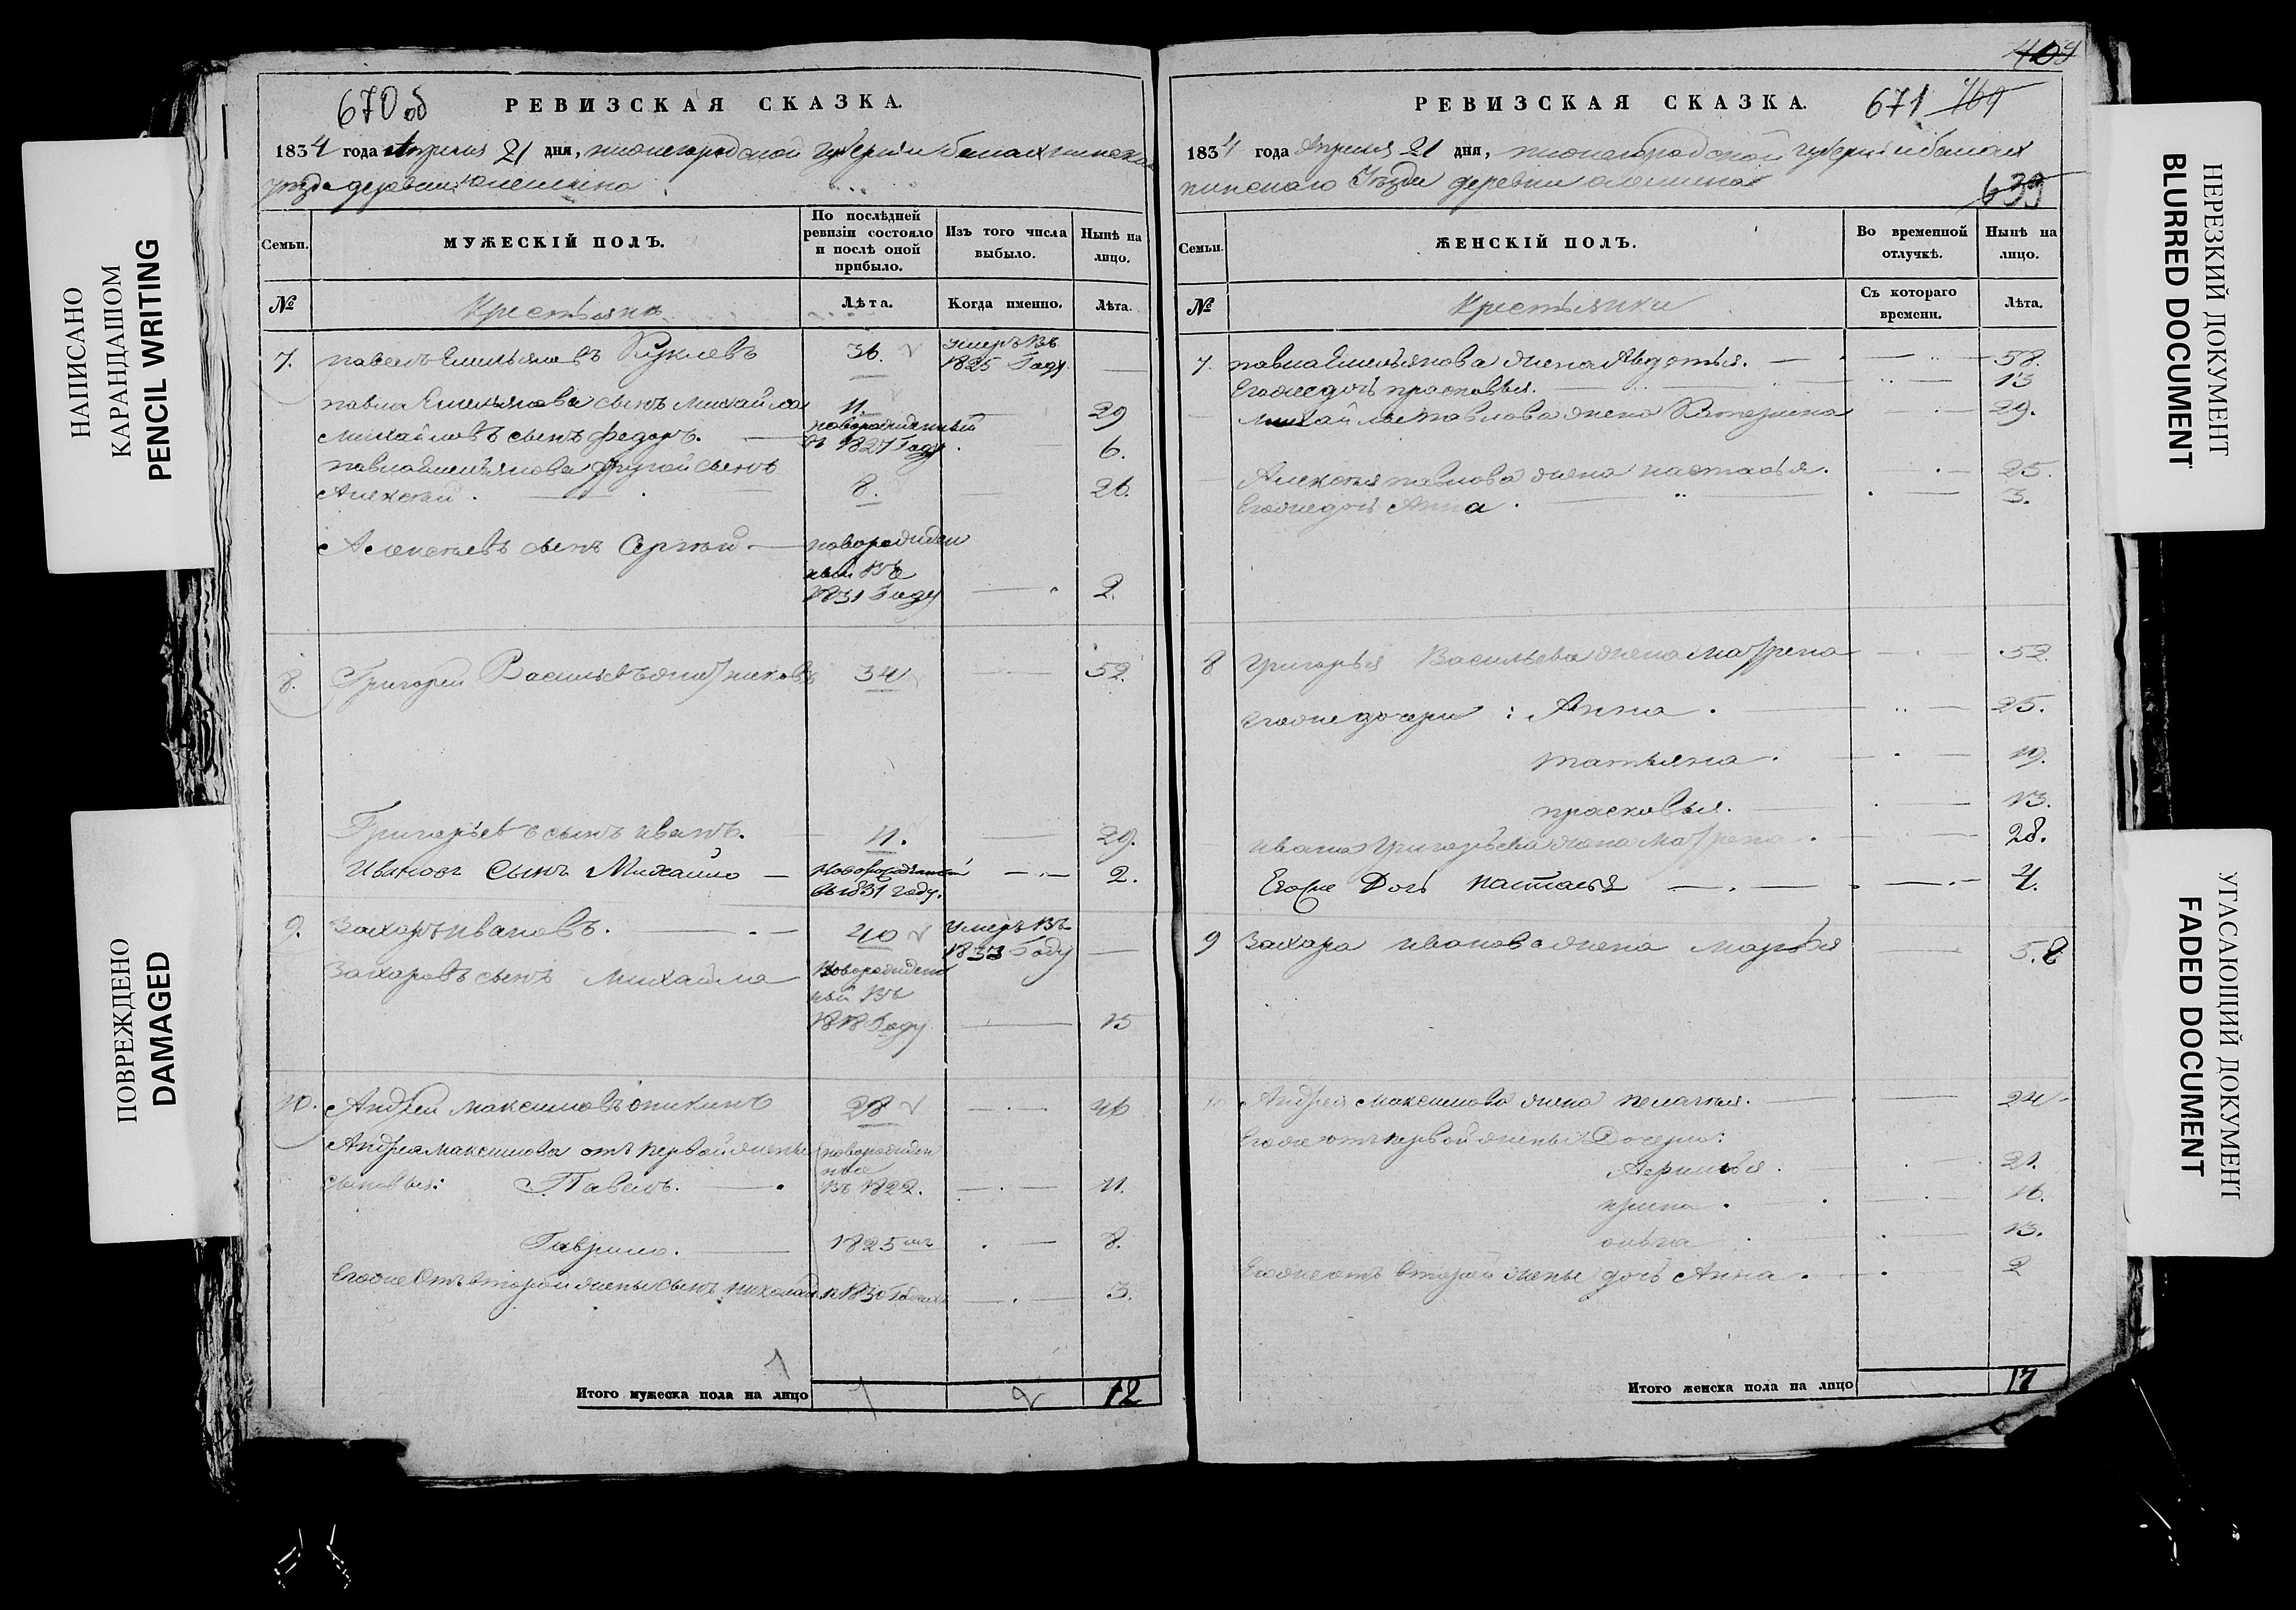 НАПИСАНО
КАРАНДАШОМ
PENCIL WRITING
ПОВРЕЖДЕНО
DAMAGED
670 об
РЕВИЗСКАЯ СКАЗКА.
1834 года Апреля 21 дня, нижегородской Губернии балахнинскаго
уезда деревни
Семьи.
МУЖЕСКІЙ ПОЛЪ.
По послѣдней ревизіи состояло и послѣ оной прибыло.
Изъ того числа выбыло.
Нынѣ на лицо.
№
Крестьянъ
Лѣта.
Когда именно.
Лѣта.
7. павелъ Емельяновъ 36. умеръ въ 1825 Году —
павла Емельянова сынъ михайла 11. 29
михайловъ сынъ федоръ. новорожденный въ 1827 Году. 6.
павла Емельянова другой сынъ
Алексей. 8. 26.
Алексеевъ сынъ Сергей. новорожденный въ 1831 Году 2.
8. Григорей Васильевъ 34 52.
Григорьевъ сынъ иванъ. 11. 29.
Ивановъ Сынъ Михайло — Новорожденный въ 1831 году. 2.
9. Захаръ ивановъ. 40 умеръ въ 1833 Году —
Захаровъ сынъ михайла новорожденный въ 1818 Году 15
10. Андрей максимовъ 28 46
Андрея максимова отъ первой жены новорожденные
сыновья: Павелъ. въ 1822. 11.
Гаврило. 1825 мъ 8.
Егоже Отъ второй жены сынъ николай 1830 3.
1
Итого мужеска пола на лицо 12
409
РЕВИЗСКАЯ СКАЗКА.
671 469
1834 года Апреля 21 дня, нижегородской губернии балах
нинскаго Уезда деревни
639
Семьи.
ЖЕНСКІЙ ПОЛЪ.
Во временной отлучкѣ.
Нынѣ на лицо.
№
Крестьянки
Съ котораго времени.
Лѣта.
7. павла Емельянова жена Авдотья. — 58.
Егоже дочь прасковья. 13
михайлы павлова жена Катерина 29.
Алексея павлова жена настасья. 25.
Егоже дочь Анна. 3.
8 Григорья Васильева жена матрена 52.
Егоже дочери: Анна. 25.
татьяна. 19.
прасковья. 13.
ивана Григорьева жена матрена. 28.
Егоже Дочь настасья 4.
9 Захара иванова жена марья 58
Андрея максимова жена пелагея. 24
Егоже отъ первой жены Дочери:
21.
ирина. 16.
ольга 13.
Егоже отъ второй жены дочь Анна. 2
Итого женска пола на лицо 17
НЕРЕЗКИЙ ДОКУМЕНТ
BLURRED DOCUMENT
УГАСАЮЩИЙ ДОКУМЕНТ
FADED DOCUMENT